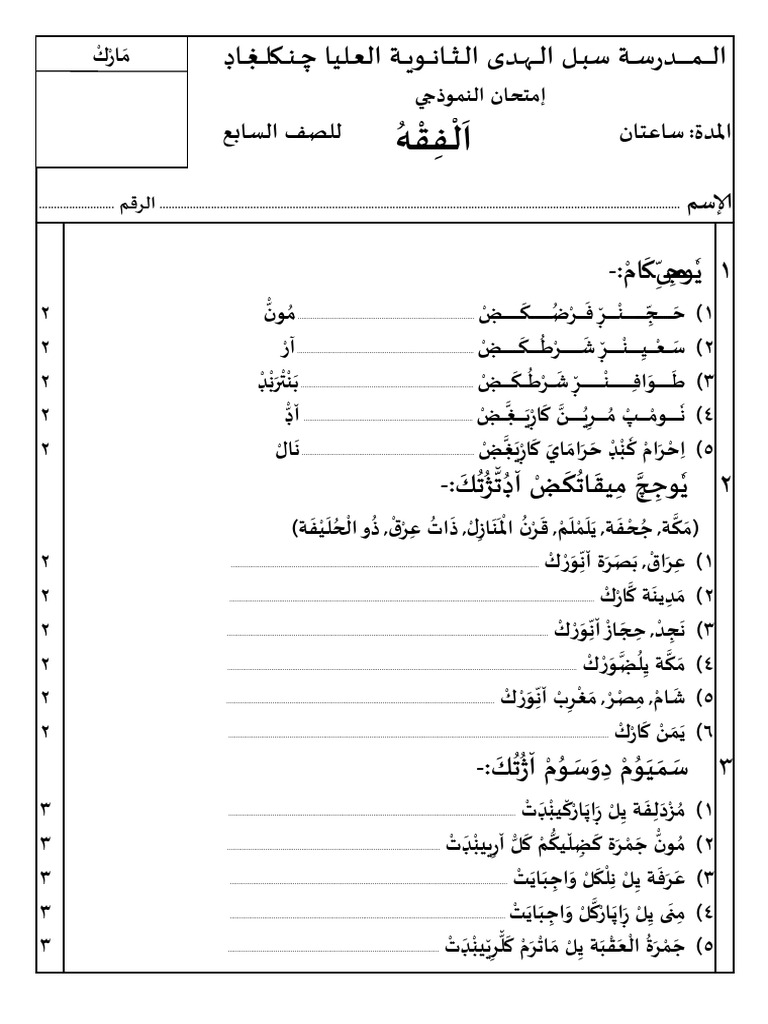 المدرسة سبل الهدى الثانوية العليا چنكلغاڊ
مَارْكْ
إمتحان النموذجي
المدة: ساعتان
اَلْفِقْهُ
للصف السابع
الإسم ........ الرقم ........
١ يٗوجِپِّكَامْ:-
١) حَجِّنْرٚ فَرْضُكَضْ ........ مُونّْ ٢
٢) سَعْيِنْرٚ شَرْطُكَضْ ........ آرْ ٢
٣) طَوَافِنْرٚ شَرْطُكَضْ ........ بَنْتْرَنْڊْ ٢
٤) نٗومْبْ مُرِيُنَّ كَارْيَغَّضْ ........ اٚڊّْ ٢
٥) اِحْرَامْ كٚنْڊْ حَرَامَايَ كَارْيَغَّضْ ........ نَالْ ٢
٢ يٗوجِچَّ مِيقَاتُكَضْ اٚڊُتّٚژُتُكَ:-
(مَكَّة, جُحْفَة, يَلَمْلَمْ, قَرْنُ الْمَنَازِلْ, ذَاتُ عِرْقْ, ذُو الْحُلَيْفَة)
١) عِرَاقْ, بَصَرَة اٚنِّوَرْكْ ........ ٢
٢) مَدِينَة كَّارْكْ ........ ٢
٣) نَجِدْ, حِجَازْ اٚنِّوَرْكْ ........ ٢
٤) مَكَّة يِلُضَّوَرْكْ ........ ٢
٥) شَامْ, مِصْرْ, مَغْرِبْ اٚنِّوَرْكْ ........ ٢
٦) يَمَنْ كَارْكْ ........ ٢
٣ سَمَيَوُمْ دِوَسَوُمْ اٚژُتُكَ:-
١) مُزْدَلِفَة يِلْ رَاپَارْكّٚينْڊَتْ ........ ٣
٢) مُونُّ جَمْرَة كَضِلّٚيكُّمْ كَلُّ اٚرِييٚنْڊَتْ ........ ٣
٣) عَرَفَة يِلْ نِلْكَلْ وَاجِبَايَتْ ........ ٣
٤) مِنَى يِلْ رَاپَارْكَّلْ وَاجِبَايَتْ ........ ٣
٥) جَمْرَةُ الْعَقْبَة يِلْ مَاتْرَمْ كَلّٚرِيّٚيبْنْڊَتْ ........ ٣